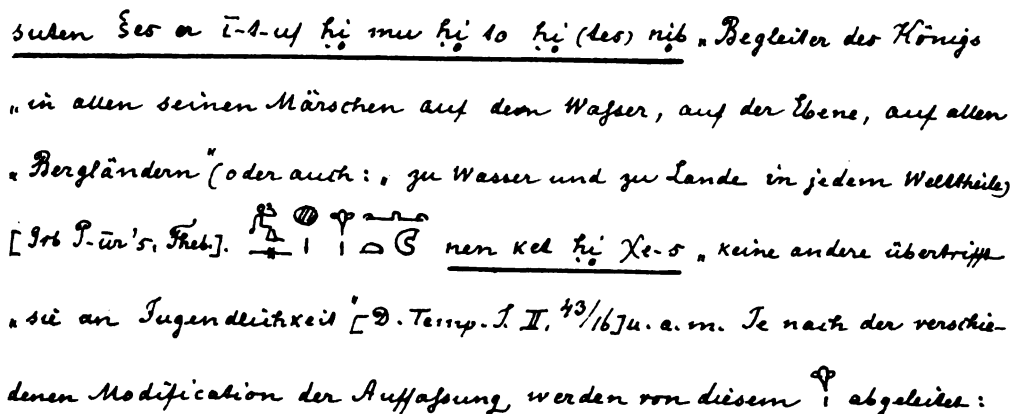 suten šes er ī-t-uf ḥi mu ḥi to ḥi (tes) nib „Begleiter des Königs
„in allen seinen Märschen auf dem Waſser, auf der Ebene, auf allen
„Bergländern" (oder auch: „zu Wasser und zu Lande in jedem Welttheile)
[Grb P-ūr's, Theb.]. nen ket ḥi χe-s „keine andere übertrifft
„sie an Jugendlichkeit" [D. Temp. I. II, 43/16] u. a. m. Je nach der verschie-
denen Modification der Auffaſsung, werden von diesem abgeleitet: